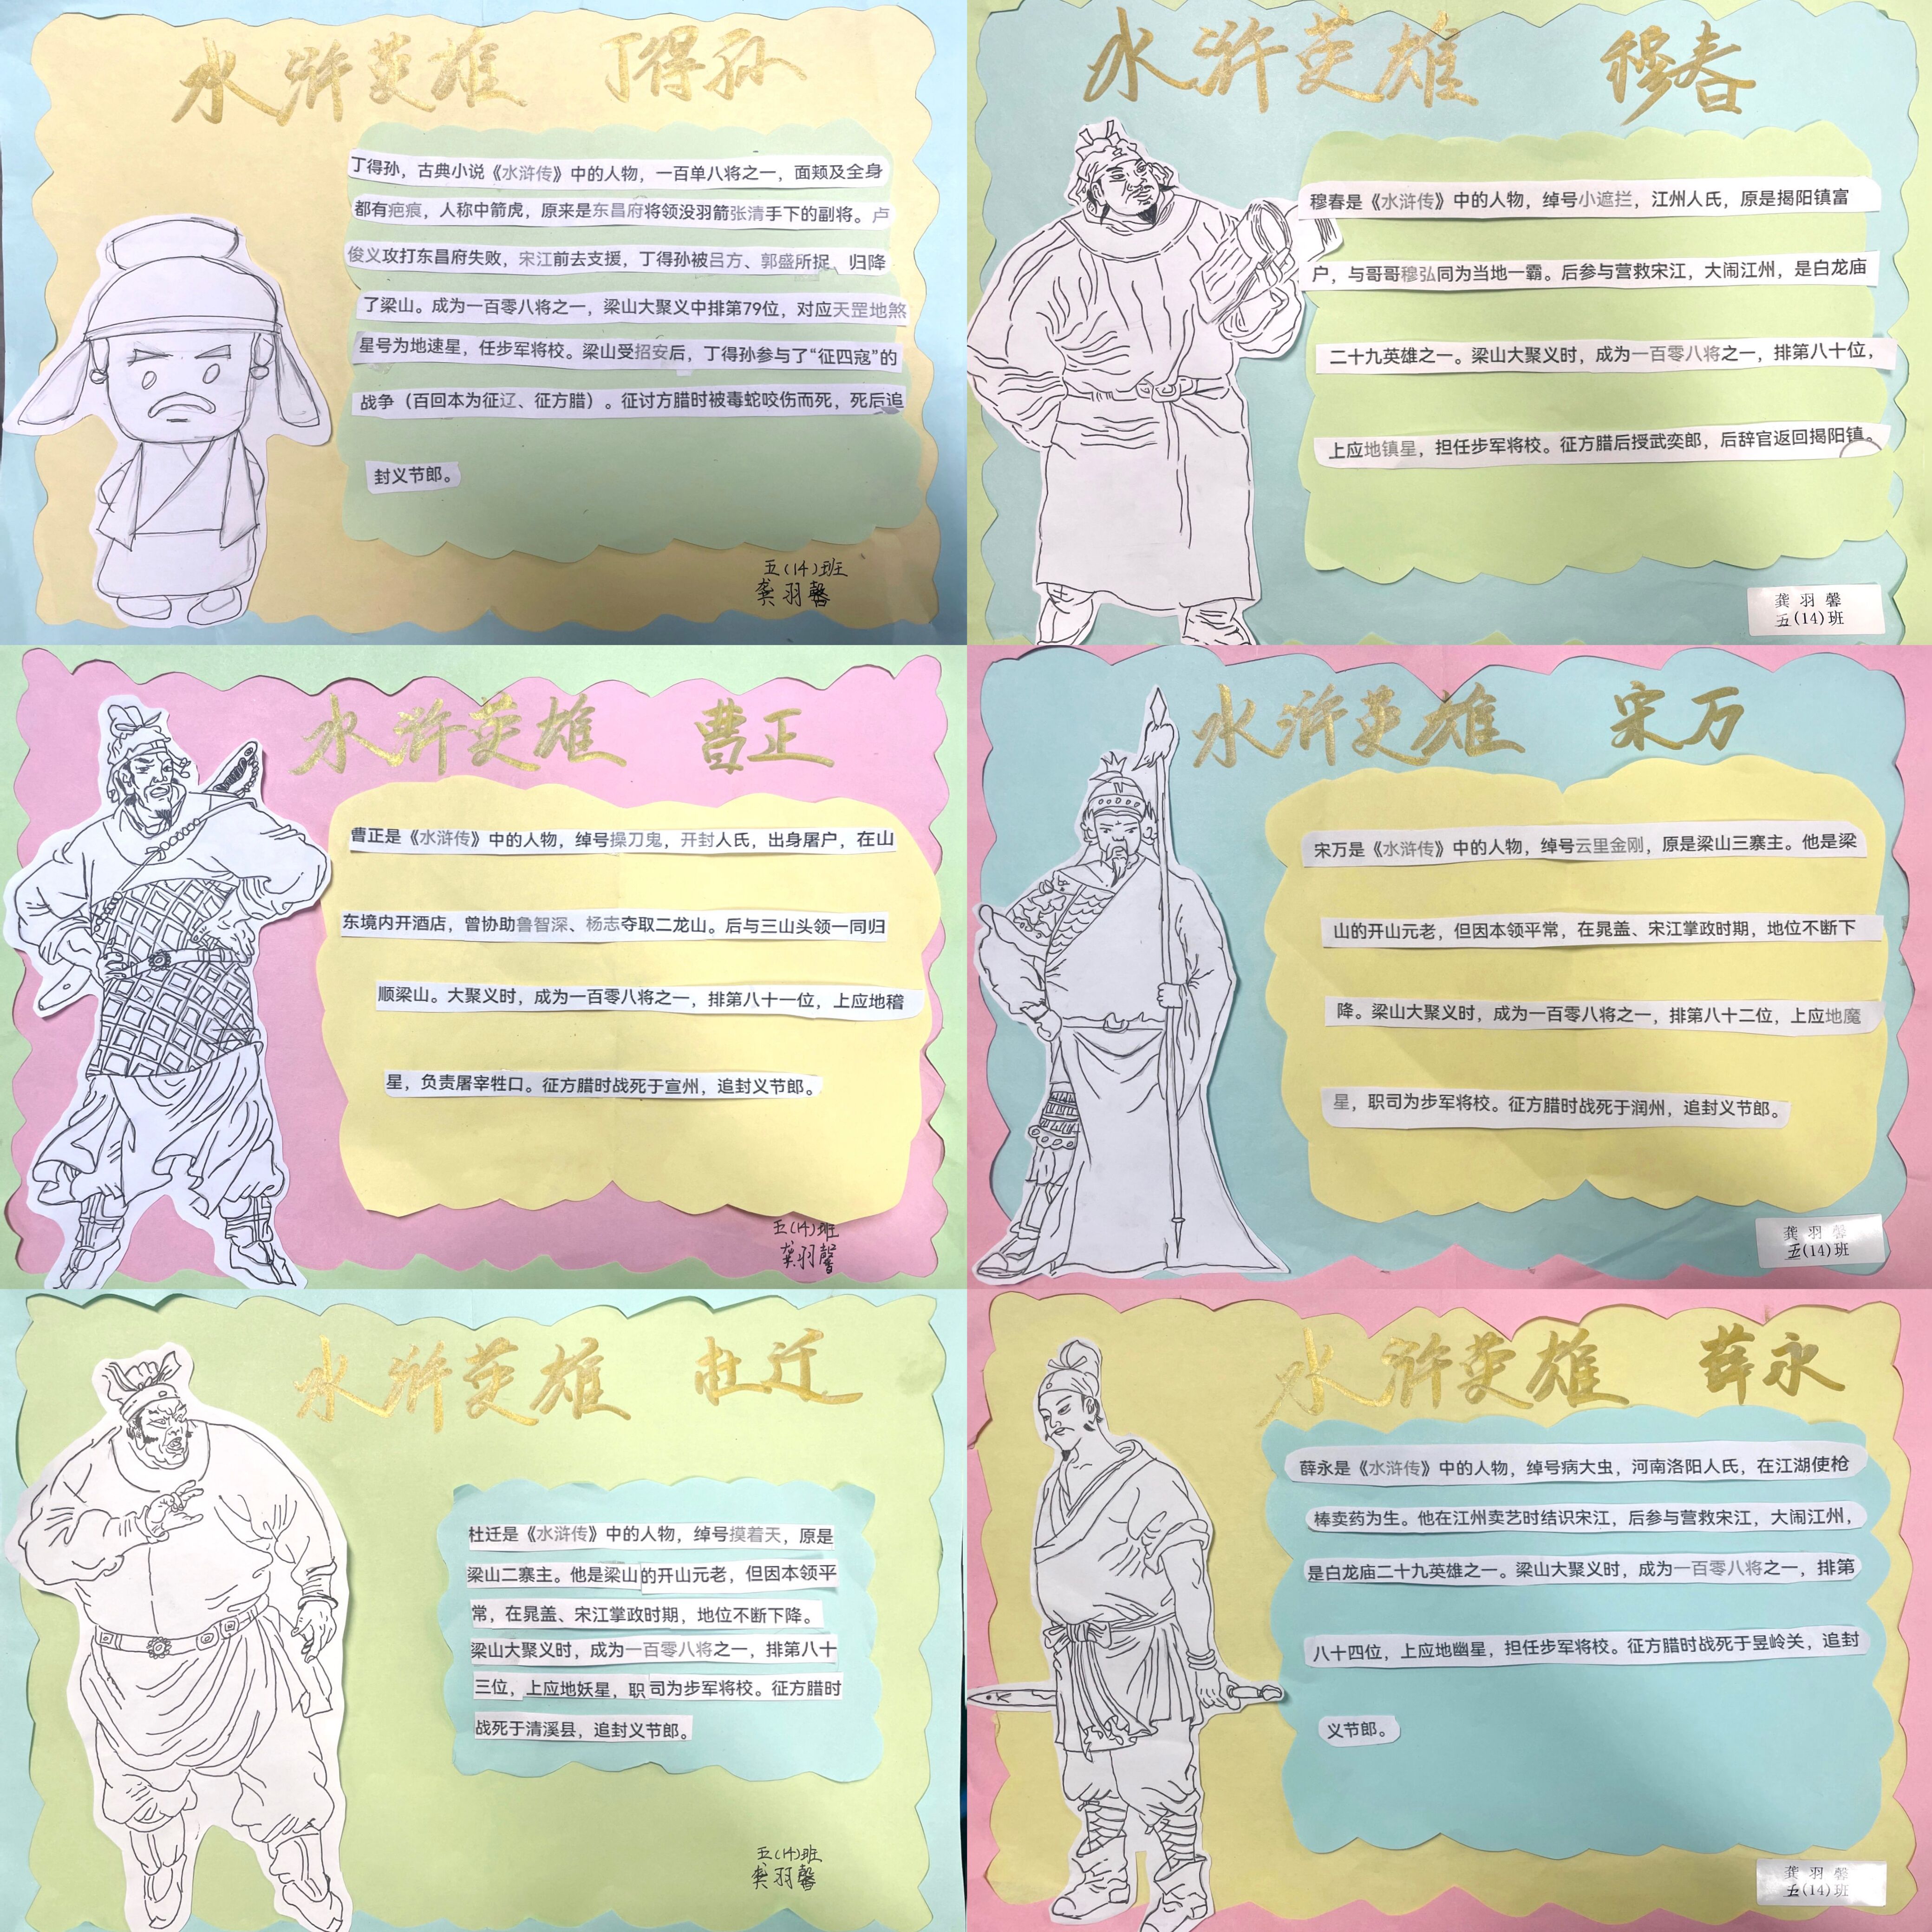 水浒英雄 丁得孙
丁得孙，古典小说《水浒传》中的人物，一百单八将之一，面颊及全身
都有疤痕，人称中箭虎，原来是东昌府将领没羽箭张清手下的副将。卢
俊义攻打东昌府失败，宋江前去支援，丁得孙被吕方、郭盛所捉，归降
了梁山。成为一百零八将之一，梁山大聚义中排第79位，对应天罡地煞
星号为地速星，任步军将校。梁山受招安后，丁得孙参与了“征四寇”的
战争（百回本为征辽、征方腊）。征讨方腊时被毒蛇咬伤而死，死后追
封义节郎。
五(14)班
龚羽馨
水浒英雄 穆春
穆春是《水浒传》中的人物，绰号小遮拦，江州人氏，原是揭阳镇富
户，与哥哥穆弘同为当地一霸。后参与营救宋江，大闹江州，是白龙庙
二十九英雄之一。梁山大聚义时，成为一百零八将之一，排第八十位，
上应地镇星，担任步军将校。征方腊后授武奕郎，后辞官返回揭阳镇。
龚羽馨
五(14)班
水浒英雄 曹正
曹正是《水浒传》中的人物，绰号操刀鬼，开封人氏，出身屠户，在山
东境内开酒店，曾协助鲁智深、杨志夺取二龙山。后与三山头领一同归
顺梁山。大聚义时，成为一百零八将之一，排第八十一位，上应地稽
星，负责屠宰牲口。征方腊时战死于宣州，追封义节郎。
五(14)班
龚羽馨
水浒英雄 宋万
宋万是《水浒传》中的人物，绰号云里金刚，原是梁山三寨主。他是梁
山的开山元老，但因本领平常，在晁盖、宋江掌政时期，地位不断下
降。梁山大聚义时，成为一百零八将之一，排第八十二位，上应地魔
星，职司为步军将校。征方腊时战死于润州，追封义节郎。
龚羽馨
五(14)班
水浒英雄 杜迁
杜迁是《水浒传》中的人物，绰号摸着天，原是
梁山二寨主。他是梁山的开山元老，但因本领平
常，在晁盖、宋江掌政时期，地位不断下降。
梁山大聚义时，成为一百零八将之一，排第八十
三位，上应地妖星，职司为步军将校。征方腊时
战死于清溪县，追封义节郎。
五(14)班
龚羽馨
水浒英雄 薛永
薛永是《水浒传》中的人物，绰号病大虫，河南洛阳人氏，在江湖使枪
棒卖药为生。他在江州卖艺时结识宋江，后参与营救宋江，大闹江州，
是白龙庙二十九英雄之一。梁山大聚义时，成为一百零八将之一，排第
八十四位，上应地幽星，担任步军将校。征方腊时战死于昱岭关，追封
义节郎。
龚羽馨
五(14)班